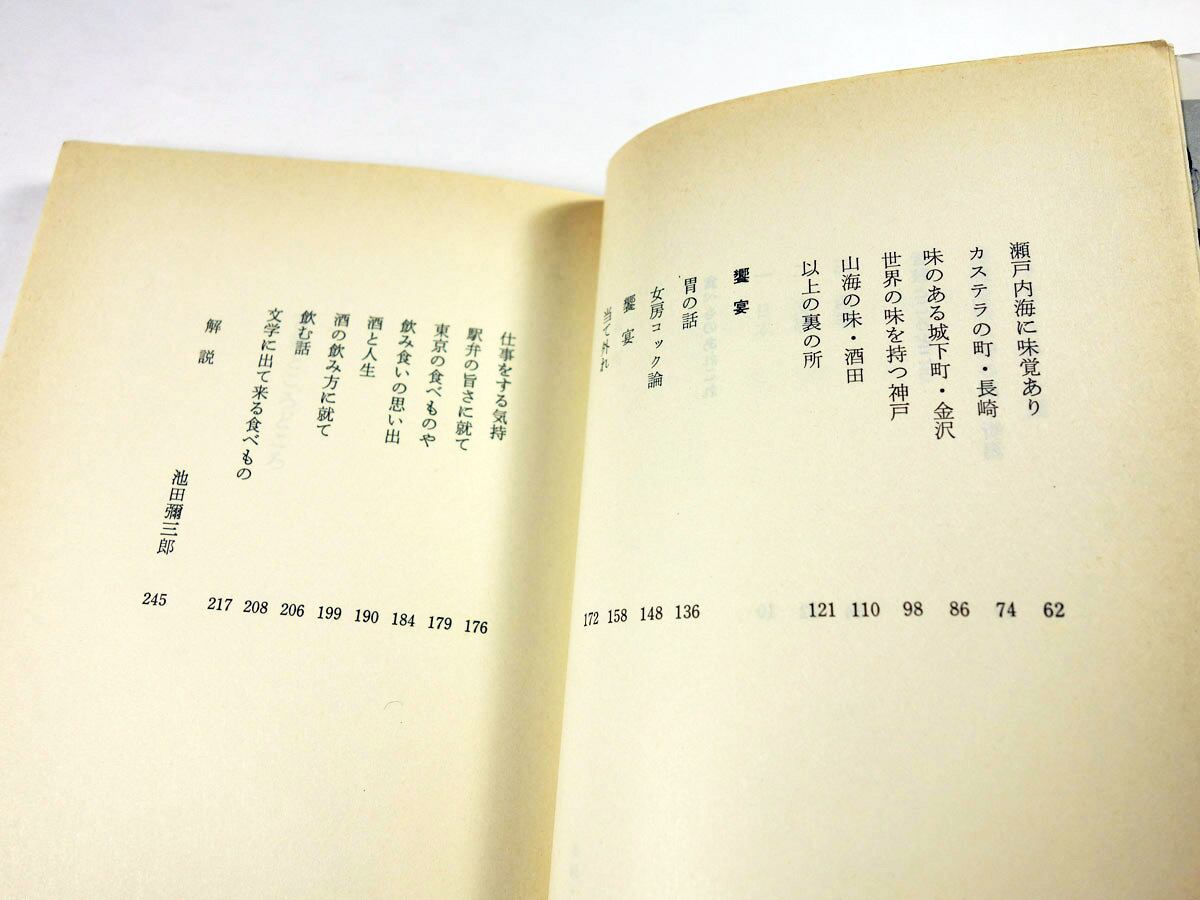 瀬戸内海に味覚あり 62
カステラの町・長崎 74
味のある城下町・金沢 86
世界の味を持つ神戸 98
山海の味・酒田 110
以上の裏の所 121
饗宴
胃の話 136
女房コック論 148
饗宴 158
当て外れ 172
仕事をする気持 176
駅弁の旨さに就て 179
東京の食べものや 184
飲み食いの思い出 190
酒と人生 199
酒の飲み方に就て 206
飲む話 208
文学に出て来る食べもの 217
解説 池田彌三郎 245